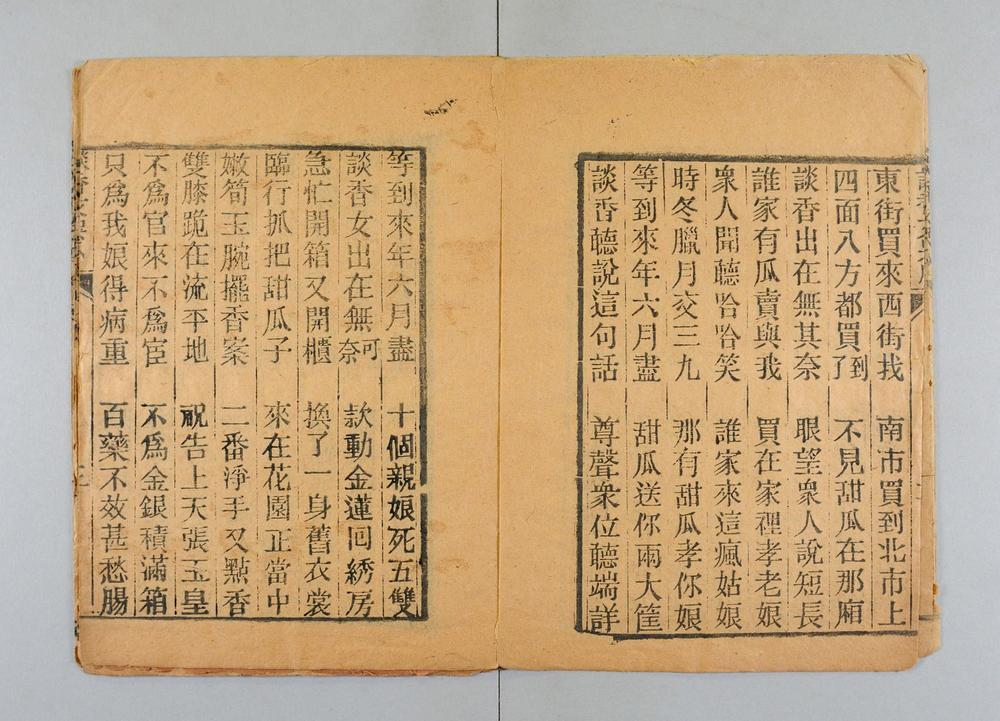 東街買來西街找 南市買到北市上
四面八方都買了到 不見甜瓜在那廂
談香出在無其奈 眼望衆人說短長
誰家有瓜賣與我 買在家裡孝老娘
衆人聞聽哈哈笑 誰家來這瘋姑娘
時冬臘月交三九 那有甜瓜孝你娘
等到來年六月盡 甜瓜送你兩大筐
談香聽說這句話 尊聲衆位聽端詳
等到來年六月盡 十個親娘死五雙
談香女出在無奈何 款動金蓮回綉房
急忙開箱又開櫃 換了一身舊衣裳
臨行抓把甜瓜子 來在花園正當中
嫩筍玉腕擺香案 二番淨手又點香
雙膝跪在流平地 祝告上天張玉皇
不爲官來不爲宦 不爲金銀積滿箱
只爲我娘得病重 百藥不效甚愁腸